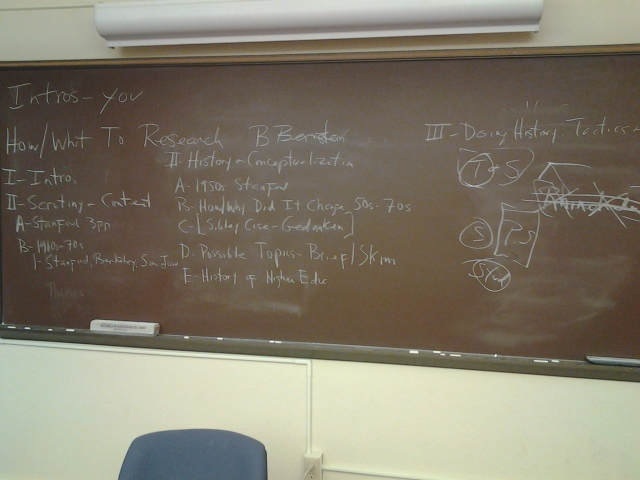 Intros - you
How/What To Research B Bernstein
I - Intro.
II - Scruting - Context
A - Stanford 3pp
B - 1940s-70s
1 - Stanford, Berkeley, San Jose
Thanks
II - History - Conceptualization
A - 1950s Stanford
B - How/Why Did It Change 50s-70s
C - [Sibley Case - Gedanken]
D - Possible Topics - Brief/Skim
E - History of Higher Educ
III - Doing History: Tactics
T + S
S
P.S
Stud